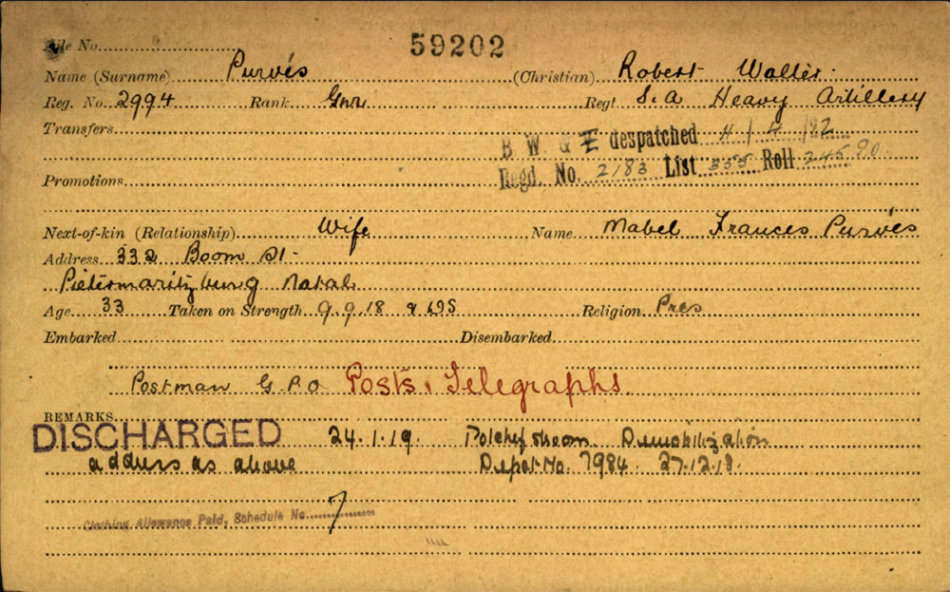 File No. 59202
Name (Surname) Purvés (Christian) Robert Walter.
Reg. No. 2994 Rank Gnr Regt S.A Heavy Artillery
Transfers
B W & despatched 4/4/22
Promotions Regd. No. 2183 List 355 Roll 90
Next-of-kin (Relationship) Wife Name Mabel Frances Purvés
Address 332 Boom St.
Pietermaritzburg Natal
Age 33 Taken on Strength 9.9.18 Religion Pres
Embarked Disembarked
Postman G.P.O Posts & Telegraphs.
REMARKS
DISCHARGED 24.1.19. Potchefstroom Demobilization
address as above Depot No. 7984 27.12.18.
Clothing Allowance Paid, Schedule No. 7